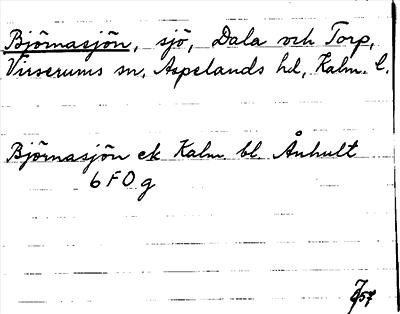 Björnasjön, sjö, Dala och Torp,
Virserums sn, Aspelands hd, Kalm. l.
Björnasjön ek Kalm bl. Ånhult
6 F O g
57